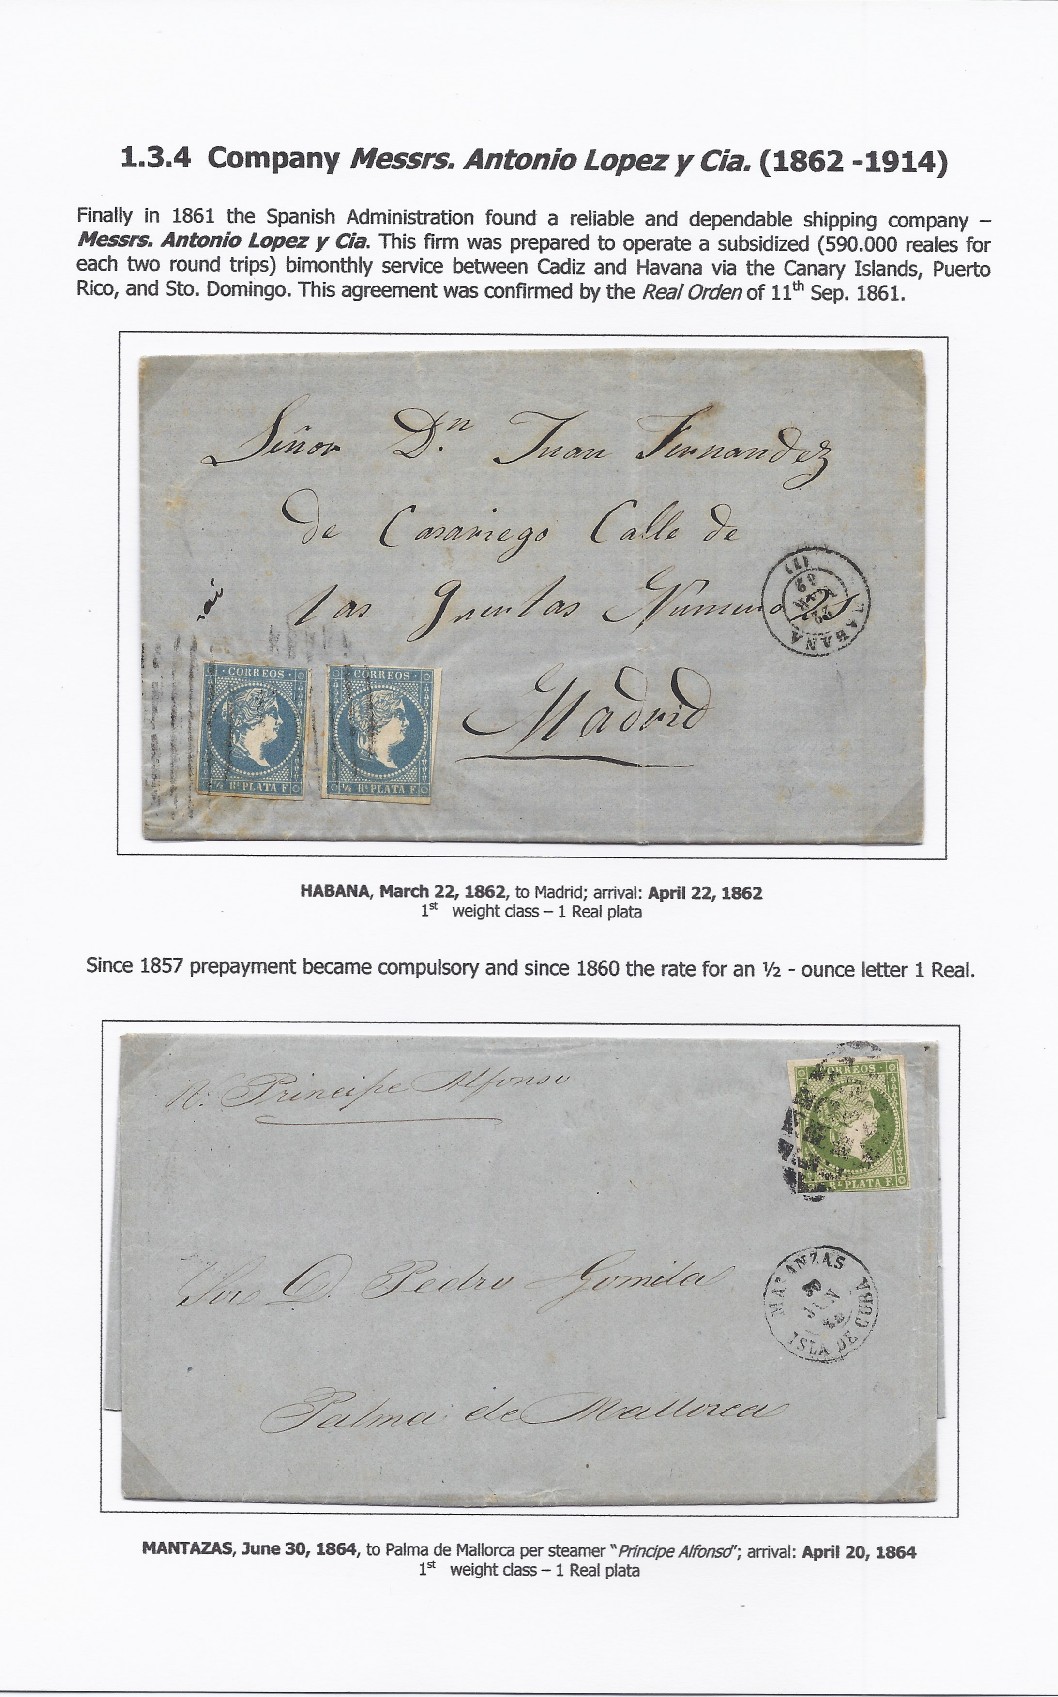 1.3.4 Company Messrs. Antonio Lopez y Cia. (1862 -1914)
Finally in 1861 the Spanish Administration found a reliable and dependable shipping company –
Messrs. Antonio Lopez y Cia. This firm was prepared to operate a subsidized (590.000 reales for
each two round trips) bimonthly service between Cadiz and Havana via the Canary Islands, Puerto
Rico, and Sto. Domingo. This agreement was confirmed by the Real Orden of 11th Sep. 1861.
Señor Dn Juan Fernandez
de Casariego Calle de
las Numero
Madrid
HABANA
CORREOS
½ Rl PLATA F.
CORREOS
½ Rl PLATA F.
HABANA, March 22, 1862, to Madrid; arrival: April 22, 1862
1st weight class – 1 Real plata
Since 1857 prepayment became compulsory and since 1860 the rate for an ½ - ounce letter 1 Real.
Principe Alfonso
CORREOS
Rl PLATA F.
MATANZAS
ISLA DE CUBA
D. Pedro Gomila
Palma de Mallorca
MANTAZAS, June 30, 1864, to Palma de Mallorca per steamer "Principe Alfonso"; arrival: April 20, 1864
1st weight class – 1 Real plata